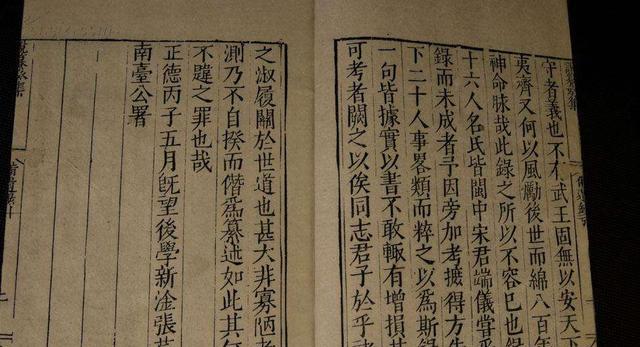 守者義也不有武王固無以安天下
夷齊又何以風勵後世而綿八百年
神命脉哉此錄之所以不容已也錄
十六人名氏皆閩中宋君端儀嘗
錄而未成者予因旁加考摭得方
下二十人事畧類而粹之以爲斯錄
一句皆據實以書不敢輒有增損其
可考者闕之以俟同志君子於乎
之淑履關於世道也甚大非寡陋者
測乃不自揆而僭爲纂述如此其
不韙之罪也哉
正德丙子五月旣望後學新淦張
南臺公署